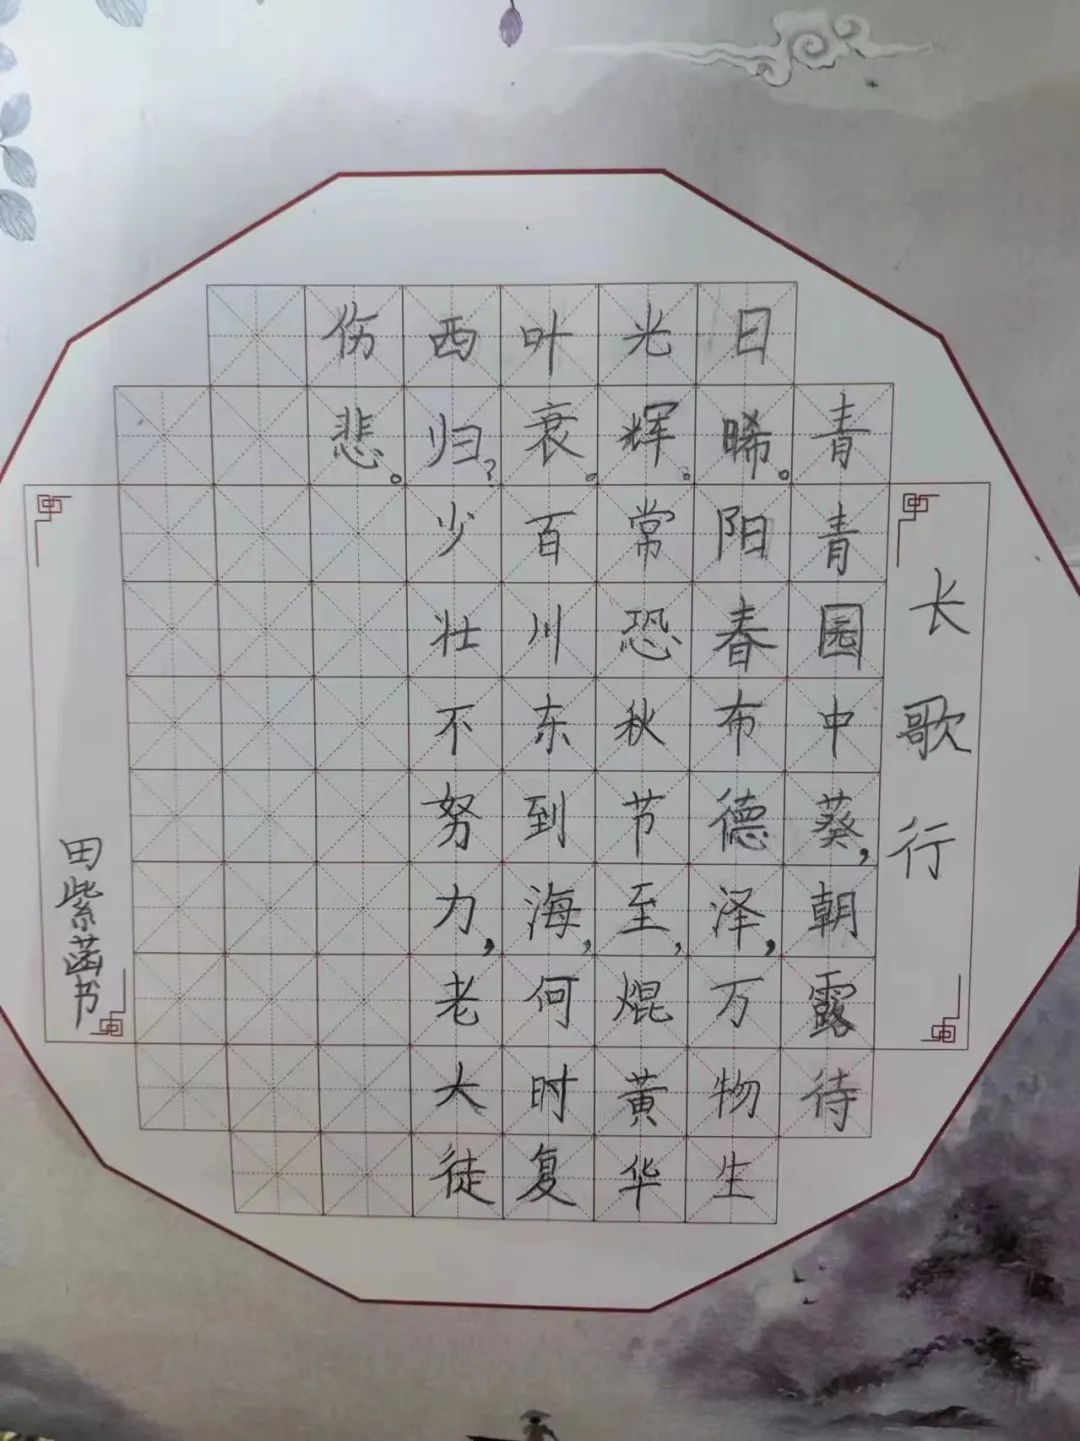 长歌行
青青园中葵，朝露待
日晞。阳春布德泽，万物生
光辉。常恐秋节至，焜黄华
叶衰。百川东到海，何时复
西归？少壮不努力，老大徒
伤悲。
田紫菡书